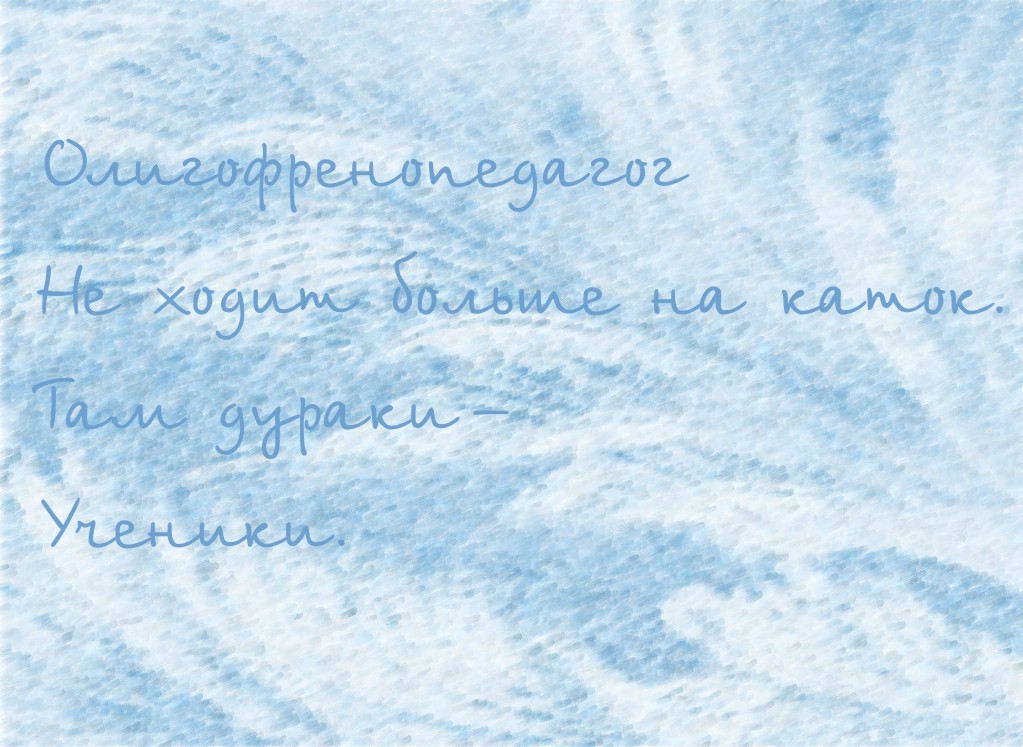 Олигофренопедагог
Не ходит больше на каток.
Там дураки –
Ученики.